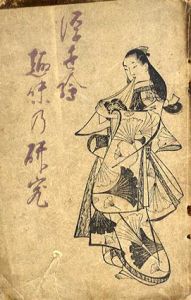 浮世絵
趣味乃研究